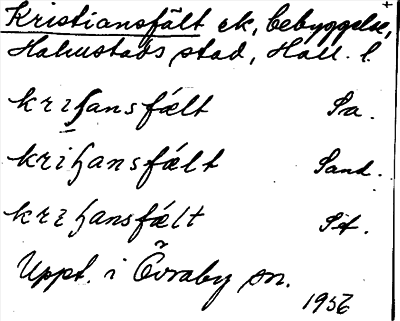 Kristiansfält ek, bebyggelse,
Halmstads stad, Hall. l.
krıʃansfælt Sa.
kriʃansfælt Sand.
krıʃansfælt St.
Uppt. i Övraby sn.
1956